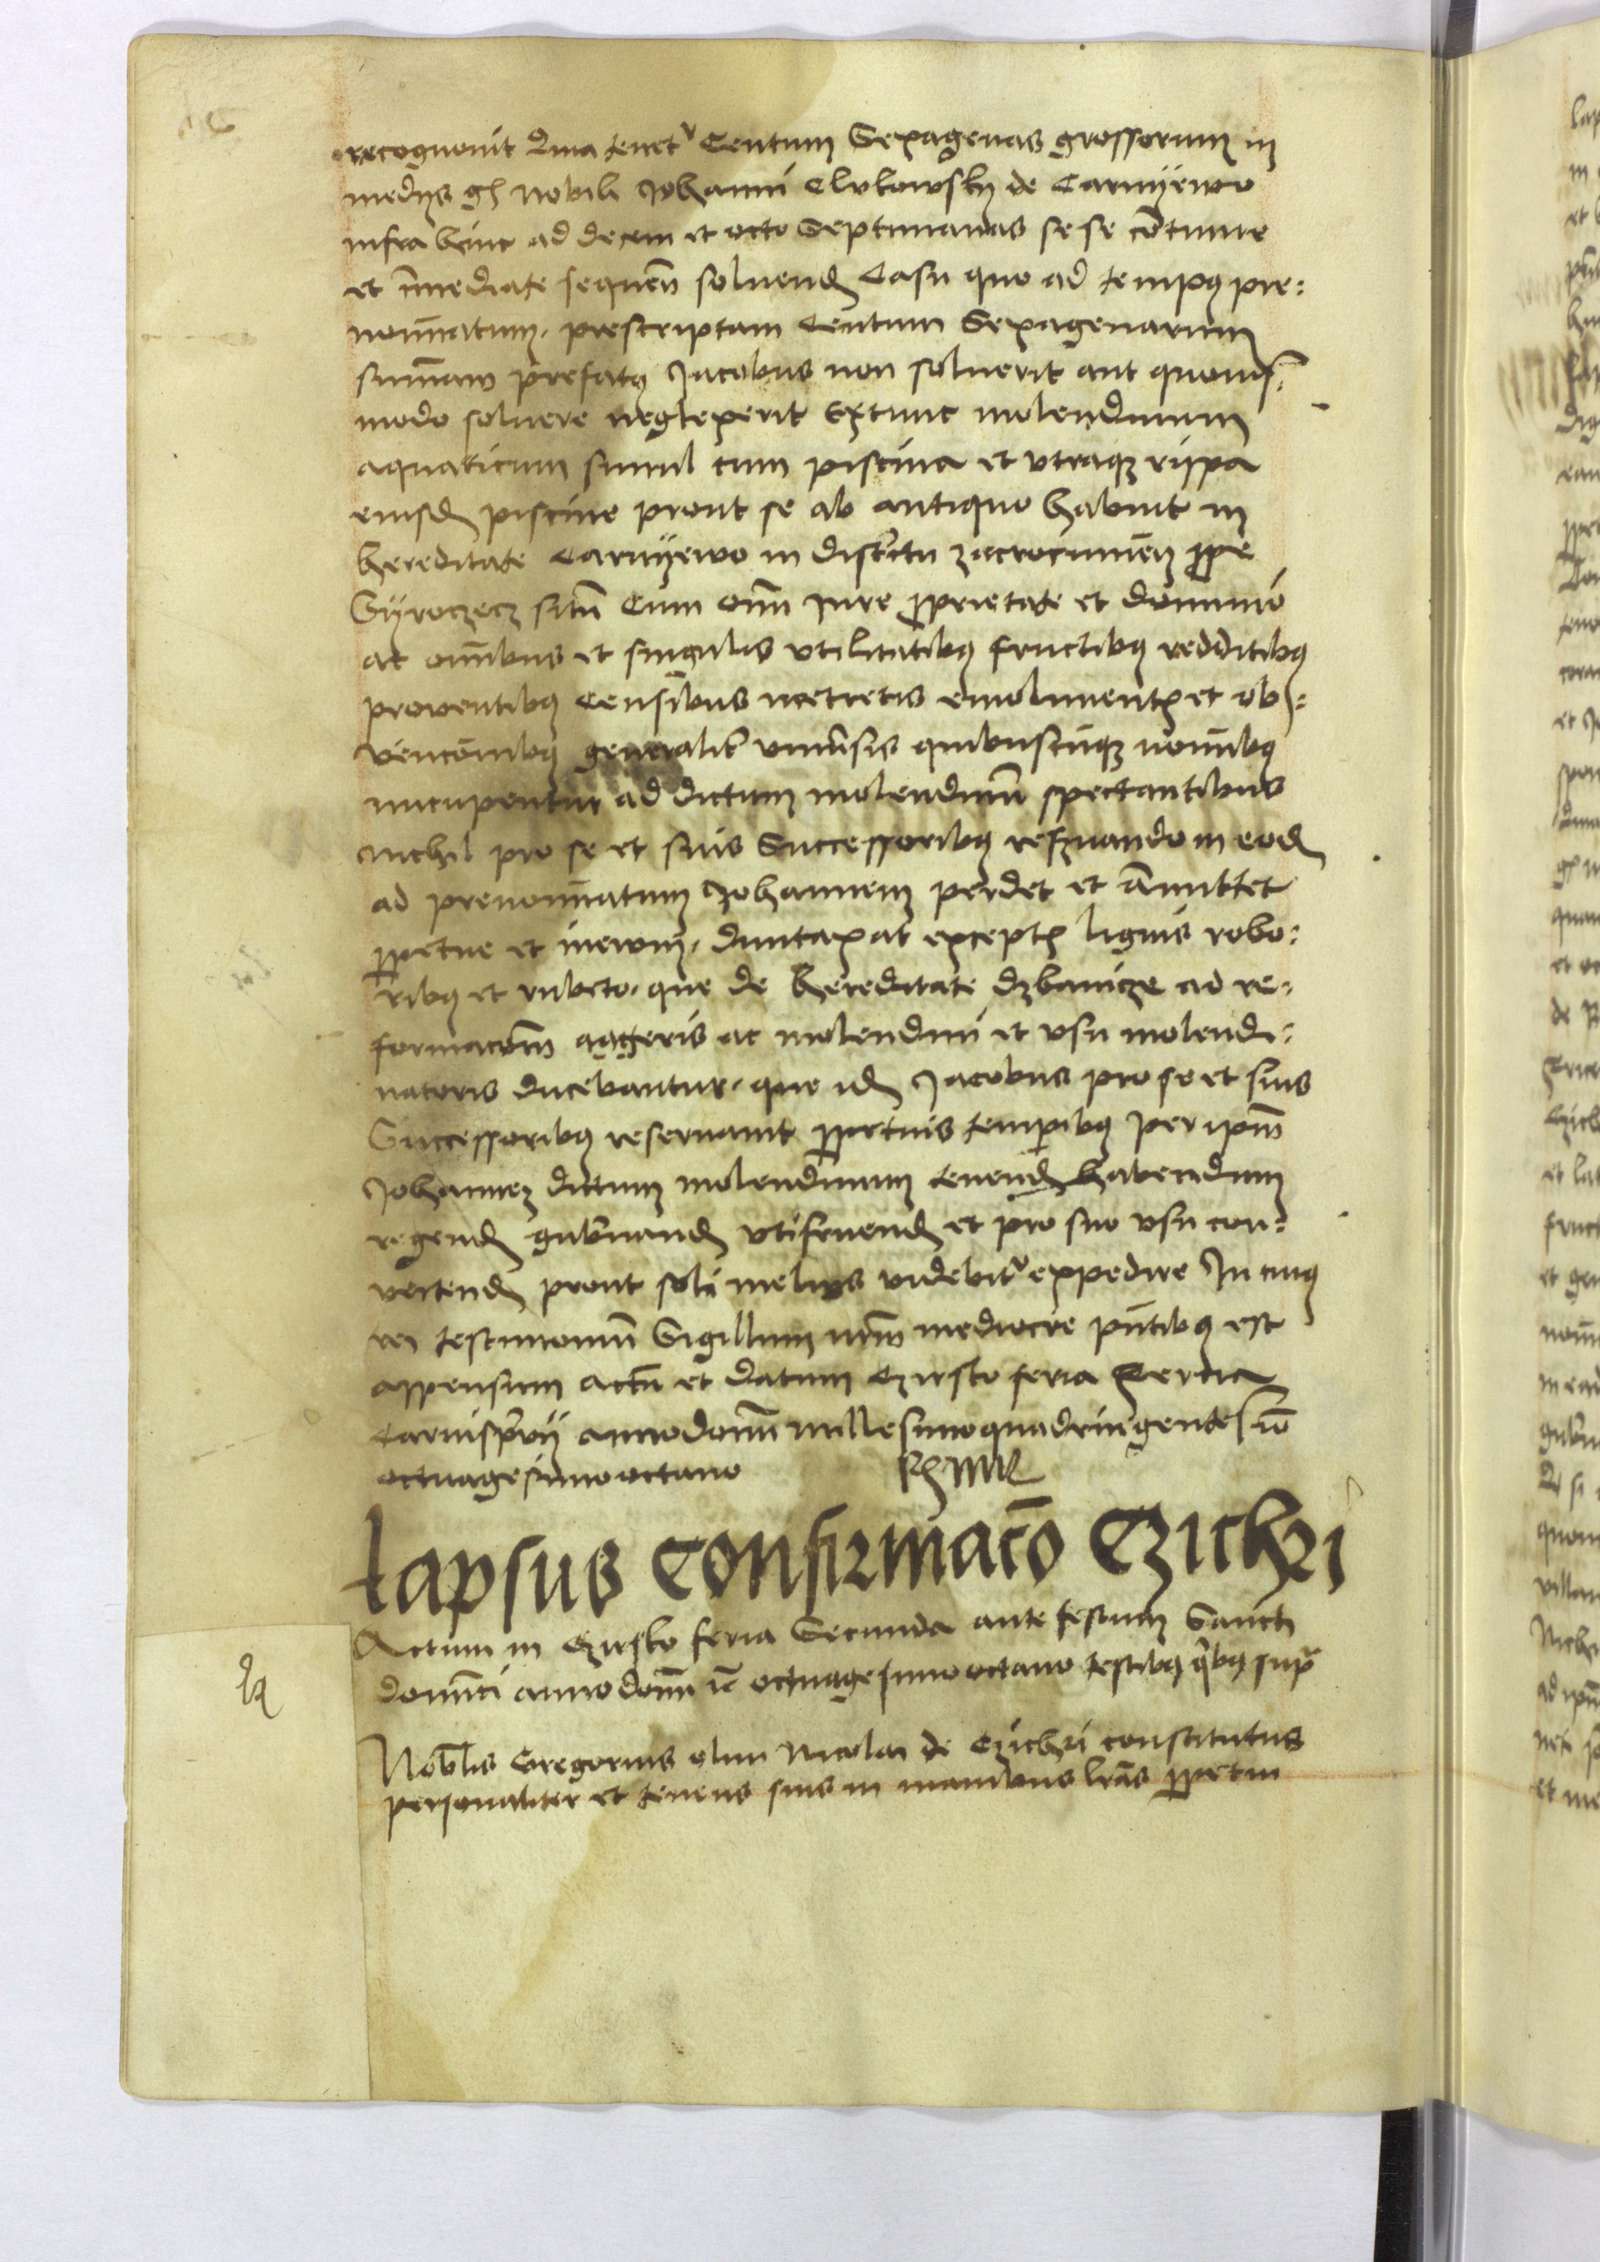 recognouit Quia tenet Centum Sexagenas grossorum in
medijs gl Nobili Johanni Clukowsky de Carnyewo
infra hinc ad decem et octo Septimanas se se cotinue
et inmediate sequen soluend Casu quo ad tempus pre:
nominatum prescriptam Centum Sexagenarum
summam prefatus Jacobus non soluerit aut quouis:
modo soluere neglexerit Extunc molendinum
aquaticum simul cum piscina et vtraque rijpa
eiusd piscine prout se ab antiquo habuit in
hereditate Carnyewo in districtu zacrocimen prope
Gyroczecz situ Cum omni Jure proprietate et dominio
ac omnibus et singulis vtilitatibus fructibus redditibus
prouentibus Censibus necretis emolimentis et ob:
vencionibus generaliter vniuersis quibuscunque nominibus
nucupentur ad dictum molendinum spectantibus
Nichil pro se et suis Successoribus reseruando in eod
ad prenominatum Johannem perdet et amittet
perpetue et ineuum duntaxat exceptis lignis robo:
ribus et rubeto que de hereditate dzbanicze ad re:
formacionem aggeris ac molendini et vsu molendi:
natoris ducebantur que id Jacobus pro se et suis
Successoribus reseruauit perpetuis temporibus per ipm
Johannem dictum molendinum tenend habendum
regend gubernand vtifruend et pro suo vsu con:
vertend prout soli melius videbitur expedire In cuius
rei testimonium Sigillum nrm mediocre pntibus est
appensum actu et datum Czirsko feria Tertia
Carnispriuij anno domini millesimo quadringentesimo
octuagesimo octauo
Lapsus Confirmacio Czichri
Actum in Czirsko feria Secunda ante festum Sancti
dominici anno domini octuagesimo octauo testibus quibus supra
Nobilis Gregorius olim Nicolai de Czichri constitutus
personaliter et tenens suis in manibus lras perpetui